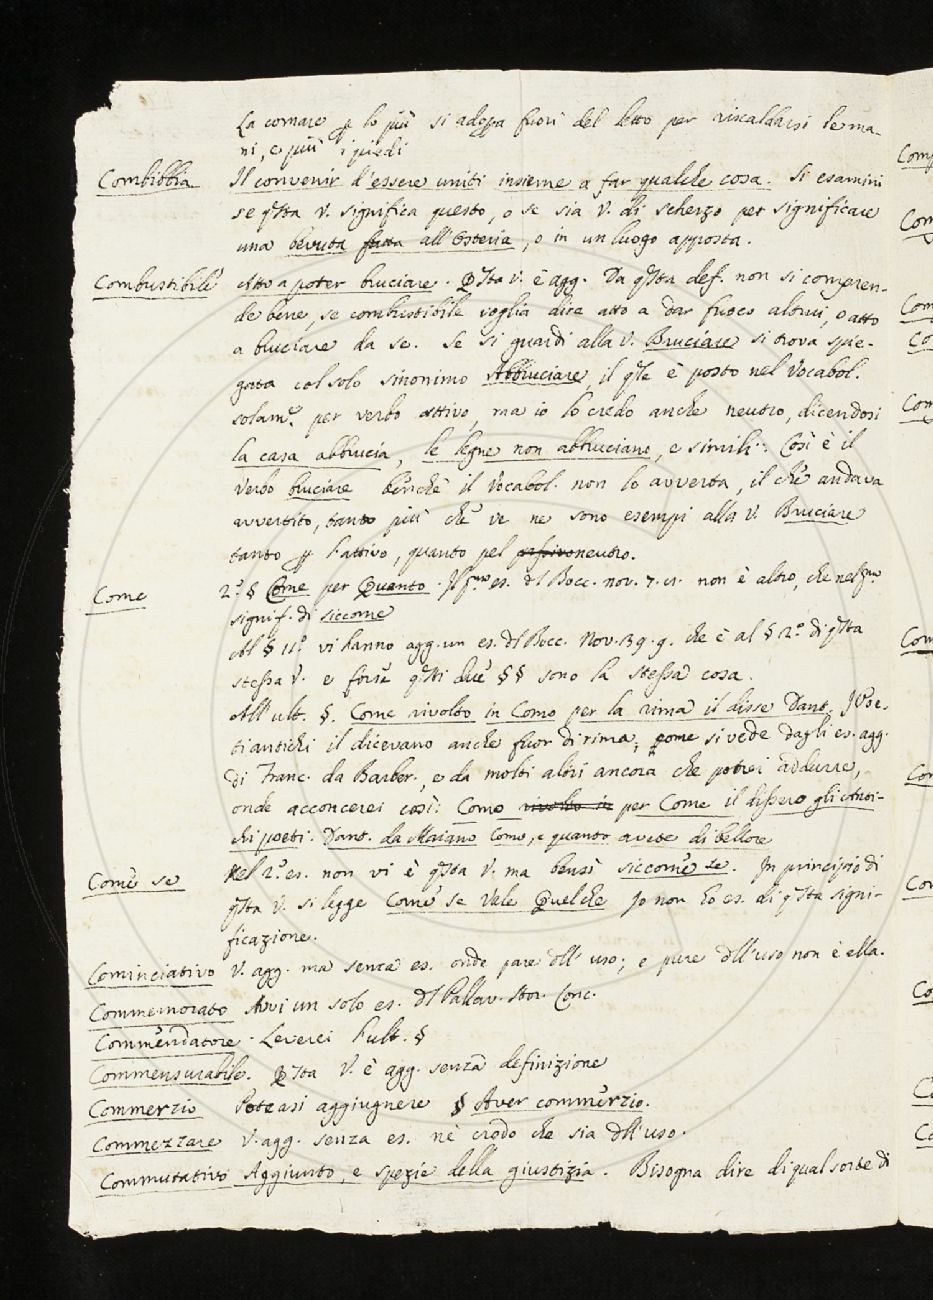 La comare p lo più si adopra fuori del letto per riscaldarsi le ma-
ni, e più i piedi
Combibbia Il convenir d'essere uniti insieme a far qualche cosa. Si esamini
se qsta v. significa questo, o se sia v. di scherzo per significare
una bevuta fatta all'osteria, o in un luogo apposta.
Combustibile Atto a poter bruciare. Qsta v. è agg. Da qsta def. non si compren-
de bene, se combustibile voglia dire atto a dar fuoco altrui, o atto
a bruciare da se. Se si guardi alla v. Bruciare si trova spie-
gata col solo sinonimo Abbruciare, il qle è posto nel Vocabol.
solam.e per verbo attivo, ma io lo credo anche neutro, dicendosi
la casa abbrucia, le legne non abbruciano, e simili: Così è il
verbo bruciare benchè il Vocabol. non lo avverta, il che andava
avvertito, tanto più che ve ne sono esempi alla v. Bruciare
tanto p l'attivo, quanto pel neutro.
Come 2.° § Come per Quanto. Il pmo es. del Bocc. nov. 7. non è altro, che nel pmo
signif. di siccome
Al § 11.° vi hanno agg. un es. dl Bocc. Nov. 39. 9. che è al § 2.° di qsta
stessa v. e forse qsti due §§ sono la stessa cosa.
All'ult. §. Come rivolto in Como per la rima il disse Dant. I Poe-
ti antichi il dicevano anche fuor di rima, come si vede dagli es. agg.
di Franc. da Barber. e da molti altri ancora che potrei addurre,
onde acconcerei così: Como rivolto in per Come il dissero gli Anti-
chi poeti. Dant. da Maiano Como, e quanto avete di bellore
Come se Nel 2.° es. non vi è qsta v. ma bensì siccome se. In principio di
qsta v. si legge Come se Vale Quelche Io non ho es. di qsta signi-
ficazione.
Cominciativo V. agg. ma senza es. onde pare dll'uso; e pure dll'uso non è ella.
Commemorato Avvi un solo es. dl Pallav. Stor. Conc.
Commendatore. Leverei l'ult. §
Commensurabile. Qsta v. è agg. senza definizione
Commerzio Poteasi aggiugnere § Aver commerzio.
Commezzare V. agg. senza es. nè credo che sia dll'uso.
Commutativo Aggiunto, e spezie della giustizia. Bisogna dire di qual sorte di